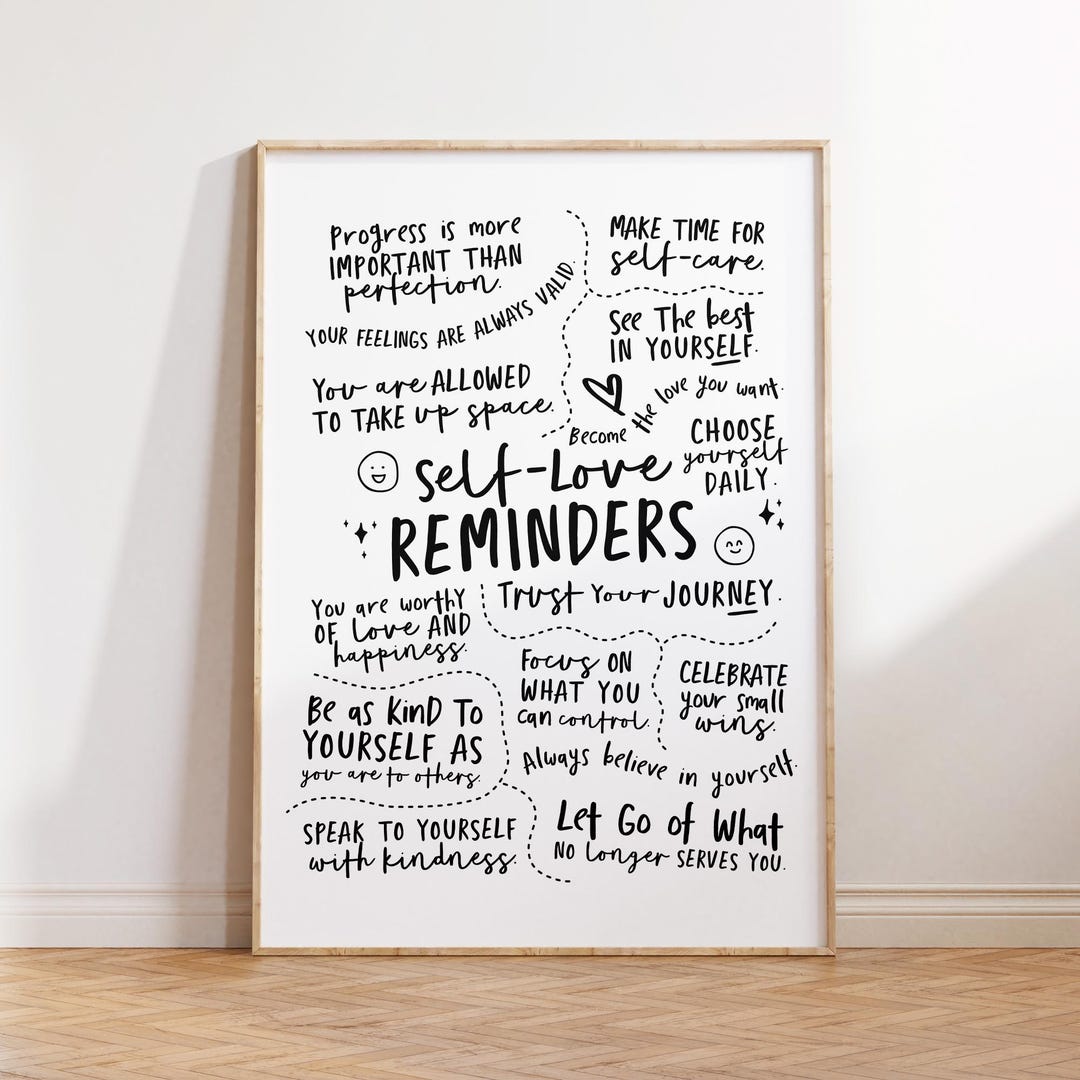 Progress is more
IMPORTANT THAN
perfection.
YOUR FEELINGS ARE ALWAYS VALID.
You are ALLOWED
TO TAKE up space.
MAKE TIME FOR
self-care.
See The best
IN YOURSELF.
Become the love you want.
CHOOSE
yourself
DAILY.
Self-Love
REMINDERS
Trust Your JOURNEY.
You are worthy
OF Love AND
happiness.
Be as KinD To
YOURSELF AS
you are to others.
SPEAK TO YOURSELF
with kindness.
Focus ON
WHAT YOU
can control.
CELEBRATE
your small
wins.
Always believe in yourself.
Let Go of What
NO Longer SERVES YOU.